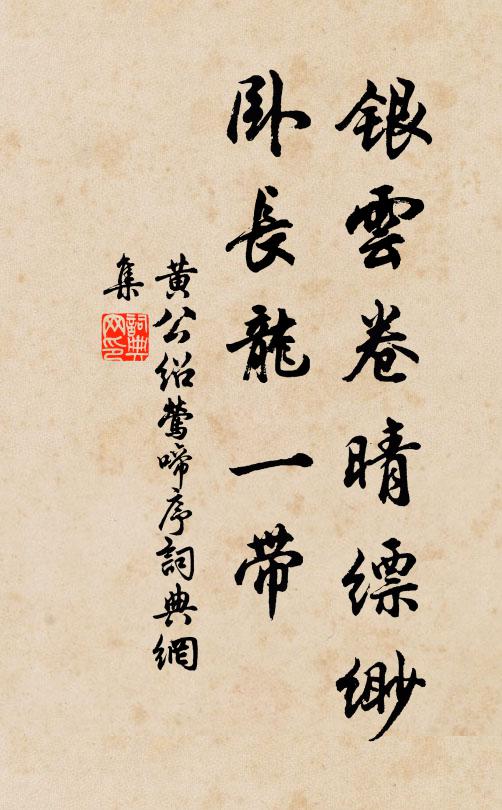 銀雲卷晴縹緲
卧長龍一帶
黃公紹鶯啼序詞典網
集
詞典
网印